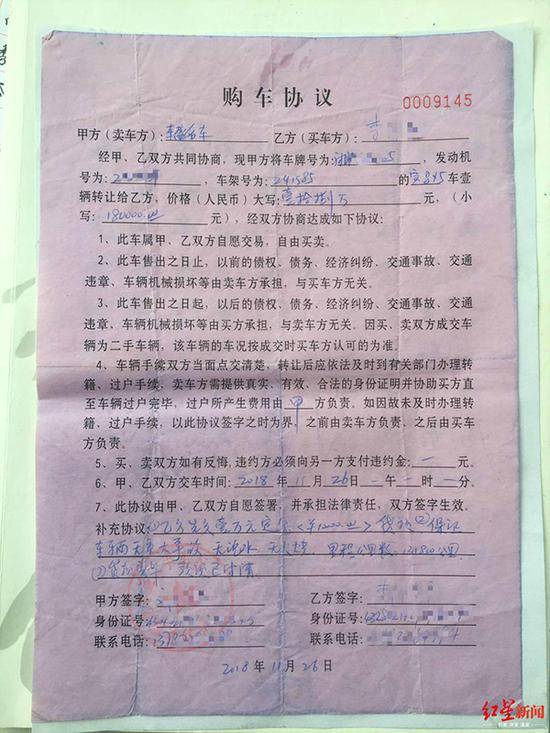 购车协议
0009145
甲方（卖车方）： 乙方（买车方）：李
经甲、乙双方共同协商，现甲方将车牌号为： 05，发动机
号为：2 ，车架号为：241585 的宝马X5车壹
辆转让给乙方，价格（人民币）大写：壹拾捌万 元，（小
写：180000.00 元），经双方协商达成如下协议：
1、此车属甲、乙双方自愿交易，自由买卖。
2、此车售出之日止，以前的债权、债务、经济纠纷、交通事故、交通
违章、车辆机械损坏等由卖车方承担，与买车方无关。
3、此车售出之日起，以后的债权、债务、经济纠纷、交通事故、交通
违章、车辆机械损坏等由买方承担，与卖车方无关。因买、卖双方成交车
辆为二手车辆，该车辆的车况按成交时买车方认可的为准。
4、车辆手续双方当面点交清楚，转让后应依法及时到有关部门办理转
籍、过户手续，卖车方需提供真实、有效、合法的身份证明并协助买方直
至车辆过户完毕，过户所产生费用由 甲 方负责。如因故未及时办理转
籍、过户手续，以此协议签字之时为界，之前由卖车方负责、之后由买车
方负责。
5、买、卖双方如有反悔，违约方必须向另一方支付违约金：一 元。
6、甲、乙双方交车时间：2018 年 11 月 26 日 一 午 一 时 一 分。
7、此协议由甲、乙双方自愿签署，并承担法律责任，双方签字生效。
补充协议：①乙方先交壹万元定金 ②保证
车辆无重大事故 无泡水 无火烧 里程公里数 公里
款项已付清
甲方签字： 乙方签字：李
身份证号： 身份证号：
联系电话： 联系电话：
2018 年 11 月 26 日
红星新闻